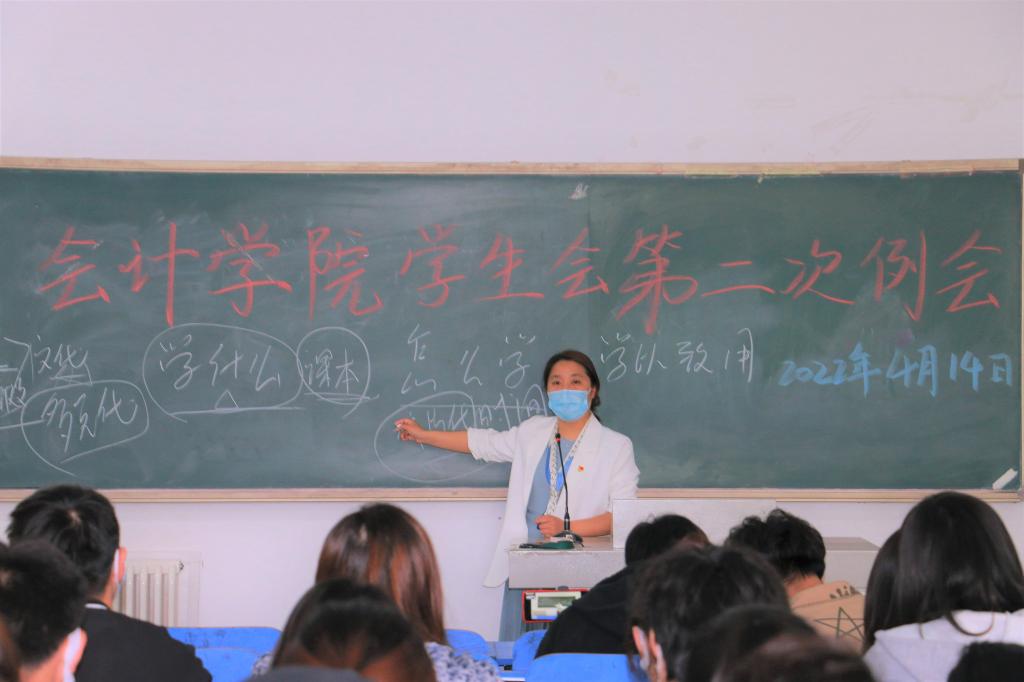 会计学院学生会第二次例会
学什么 课本 怎么学 学以致用 2022年4月14日